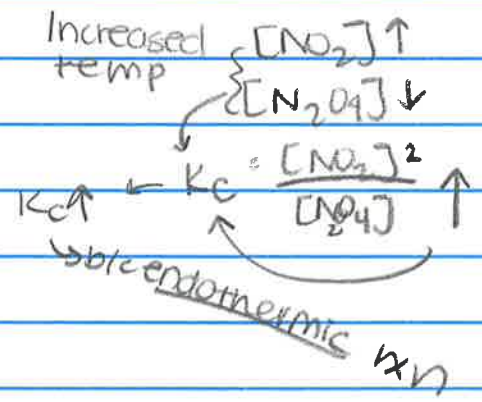 Increased [NO₂] ↑
temp [N₂O₄] ↓
Kc↑ ← Kc = [NO₂]² ↑
[N₂O₄]
↳ b/c endothermic rxn